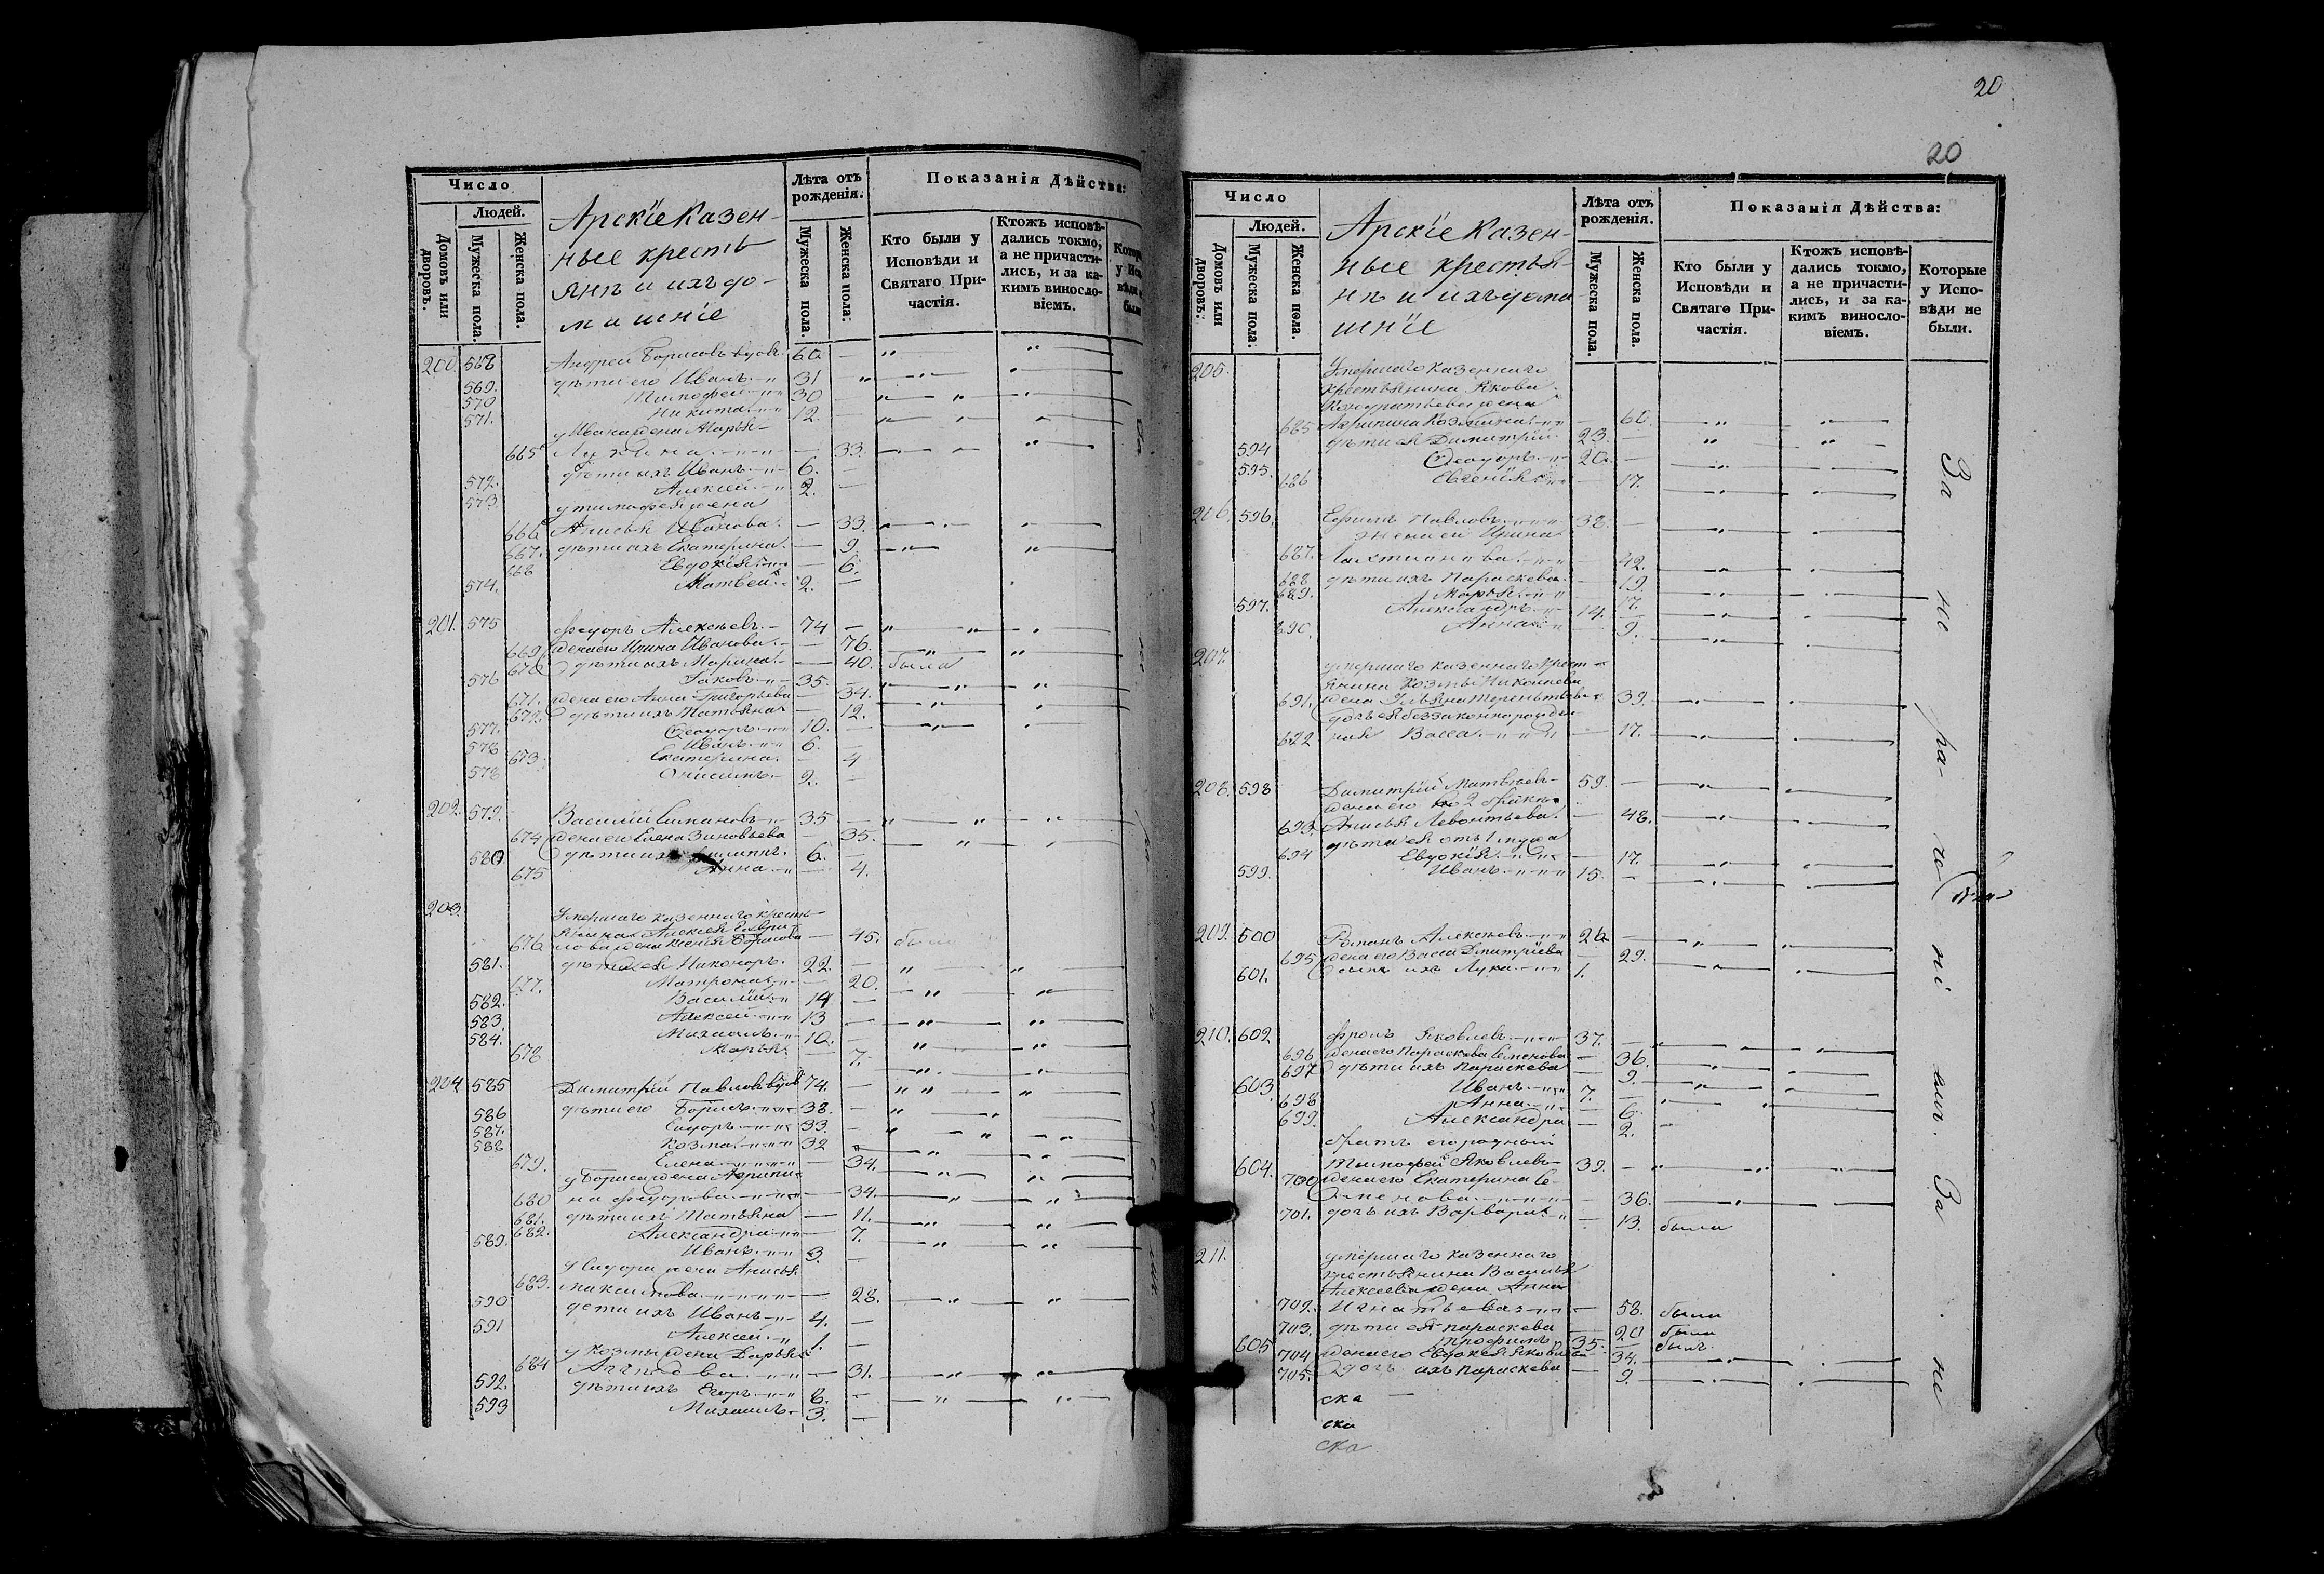 Число
Людей.
Домовъ или дворовъ.
Мужеска пола.
Женска пола.
Арскіе казен-
ные кресть
янъ и ихъ до-
машніе
Лѣта отъ рожденія.
Мужеска пола.
Женска пола.
Показанія Дѣйства:
Кто были у Исповѣди и Святаго При-частія.
Ктожъ исповѣ-дались токмо, а не причасти-лись, и за ка-кимъ винносло-віемъ.
200. 568 Андрей Борисовъ вдовъ 60 —
569. дѣти его Иванъ 31
570 Тимофей 30
571. Никита 12. —
у Ивана жена Марья
665 — 33.
572. дѣти ихъ Иванъ 6. —
573. Алексей 2. —
у Тимофея жена
666 Анисья Иванова — 33.
667. дѣти ихъ Екатерина — 9
668 Евдокія — 6.
574. Матвей 2. —
201. 575 Федоръ Алексѣевъ 74 —
669 жена его Ирина Иванова — 76.
670 дѣти ихъ Марина — 40. была
576 Іаковъ 35. —
671. жена его Анна Григорьева — 34.
672. дѣти ихъ Татьяна — 12.
577. Ѳеодоръ 10. —
578 Иванъ 6. —
673. Екатерина — 4
578 Онисимъ 2. —
202. 579. Василій 35 —
674 жена его Елена Зиновьева — 35.
580 дѣти ихъ 6. —
675 Анна — 4.
203. Умершаго казеннаго кресть-
янина Алексея
676 жена Ксенья Борисова — 45. была
581. дѣти ея Никоноръ 22. —
677. Матрона — 20.
582. Василій 14 —
583. Алексей 13 —
584. Михаилъ 10. —
678 Марья — 7.
204 585 Димитрій Павловъ вдовъ 74. —
586 дѣти его Борисъ 38. —
587. Сидоръ 33. —
588 Козма 32
679. Елена — 34.
у Бориса жена Агрипи-
680 на Федорова — 34.
681. дѣти ихъ Татьяна — 11.
682. Александра — 7.
589. Иванъ 3. —
у Сидора жена Анисья
683. Максимова — 28.
590 дети ихъ Иванъ 4. —
591 Алексей 1. —
у Козмы жена Дарья
684 — 31.
592. дѣти ихъ Егоръ 6. —
593 Михаилъ 3. —
20
20
Число
Людей.
Домовъ или дворовъ.
Мужеска пола.
Женска пола.
Арскіе казен-
ные крестья-
нъ и ихъ дома
шніе
Лѣта отъ рожденія.
Мужеска пола.
Женска пола.
Показанія Дѣйства:
Кто были у Исповѣди и Святаго При-частія.
Ктожъ исповѣ-дались токмо, а не причасти-лись, и за ка-кимъ винносло-віемъ.
Которые у Испо-вѣди не были.
205. Умершаго казеннаго
крестьянина Якова
Кондратьева жена
685 Агрипина Козмина — 60.
594 дѣти ея Димитрій 23. —
595. Ѳеодоръ 20. —
686 Евгенія — 17.
206. 596. Ефимъ Павловъ 38. —
жена ею Ирина
687. — 42.
688 дѣти ихъ Параскева — 19.
689. Марья — 17.
597. Александръ 14. —
690. Анна — 9.
207. умершаго казеннаго крест
янина Козмы Николаева
691. жена Ульяна Терентьева 39.
дочь ея беззаконнорожден
692 ная Васса — 17.
208. 598 Димитрій Матвѣевъ 59. —
жена его во 2 бракѣ
693. Анисья Леонтьева — 48.
694 дѣти ея отъ 1 мужа
Евдокія — 17.
599. Иванъ 15. —
209. 600 Романъ Алексѣевъ 26 —
695 жена его Васса Дмитріева — 29.
601. сынъ ихъ Лука 1.
210. 602 Фролъ Яковлевъ 37. —
696 жена его Параскева Семенова — 36.
697 дѣти ихъ Параскева — 9.
603 Иванъ 7. —
698 Анна — 6.
699. Александра — 2.
братъ его родный
604. Тимофей Яковлевъ 39. —
700 жена его Екатерина Се-
менова — 36.
701. дочь ихъ Варвара — 13. была
211. умершаго казеннаго
крестьянина Василья
Алексеева жена Анна
702. Игнатьева — 58. была
703. дѣти ея Параскева — 20 была
605 Трофимъ 35. — былъ
704 жена его Евдокея Яковлева 34.
705. дочь ихъ Параскева — 9.
ска
ска
ска
За
не
ра-
че
ні
емъ.
За
не